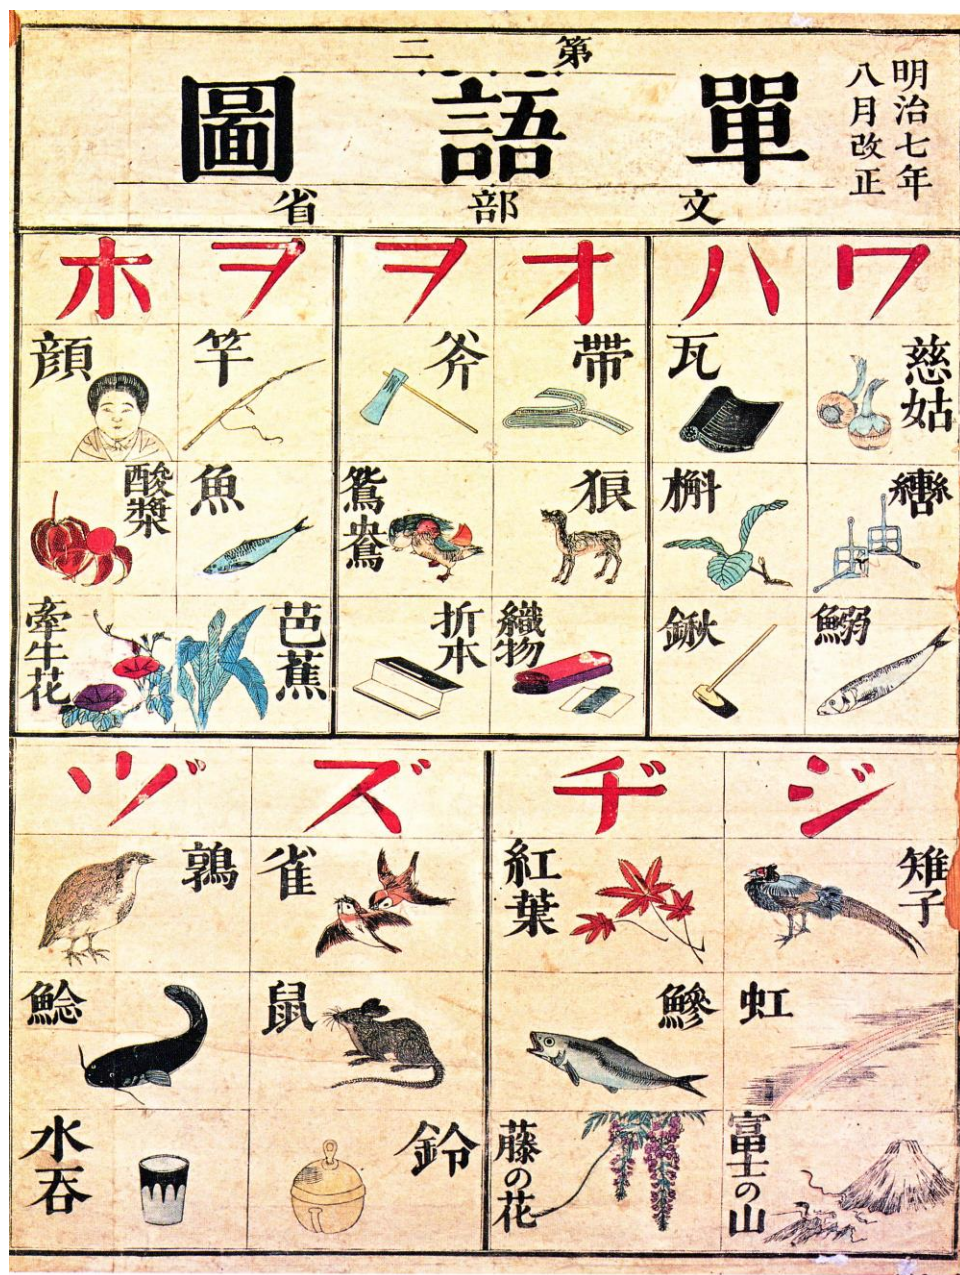 明治七年
八月改正
第二
單語圖
文部省
ワ
慈姑
轡
鰯
ハ
瓦
槲
鍬
オ
帯
狼
織物
ヲ
斧
鴛鴦
折本
ヲ
竿
魚
芭蕉
ホ
顔
酸漿
牽牛花
ジ
雉子
虹
富士の山
ヂ
紅葉
鰺
藤の花
ズ
雀
鼠
鈴
ヅ
鶉
鯰
水呑